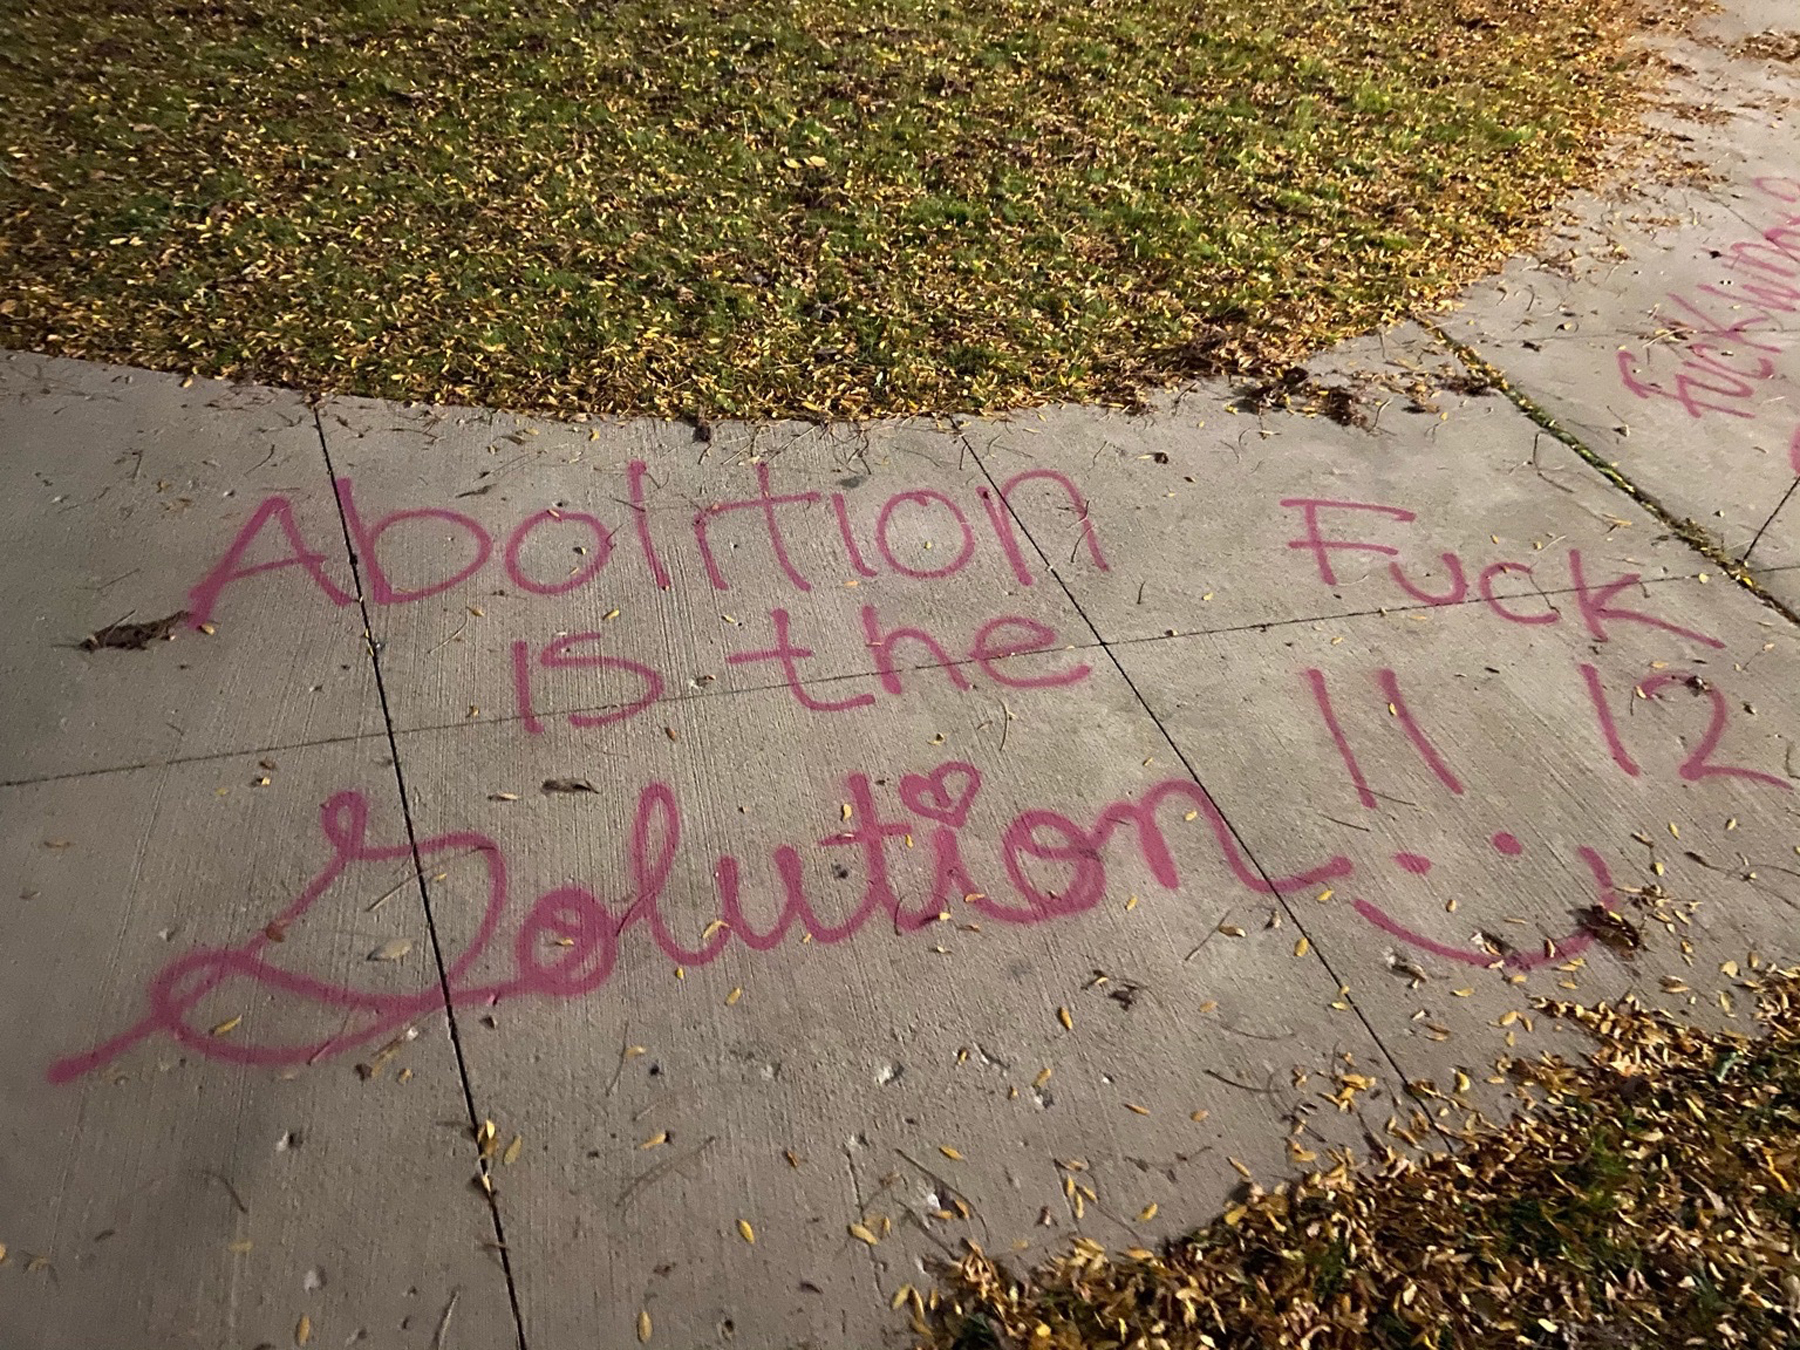 Abolition
is the
Solution
Fuck
11 12
Fuck